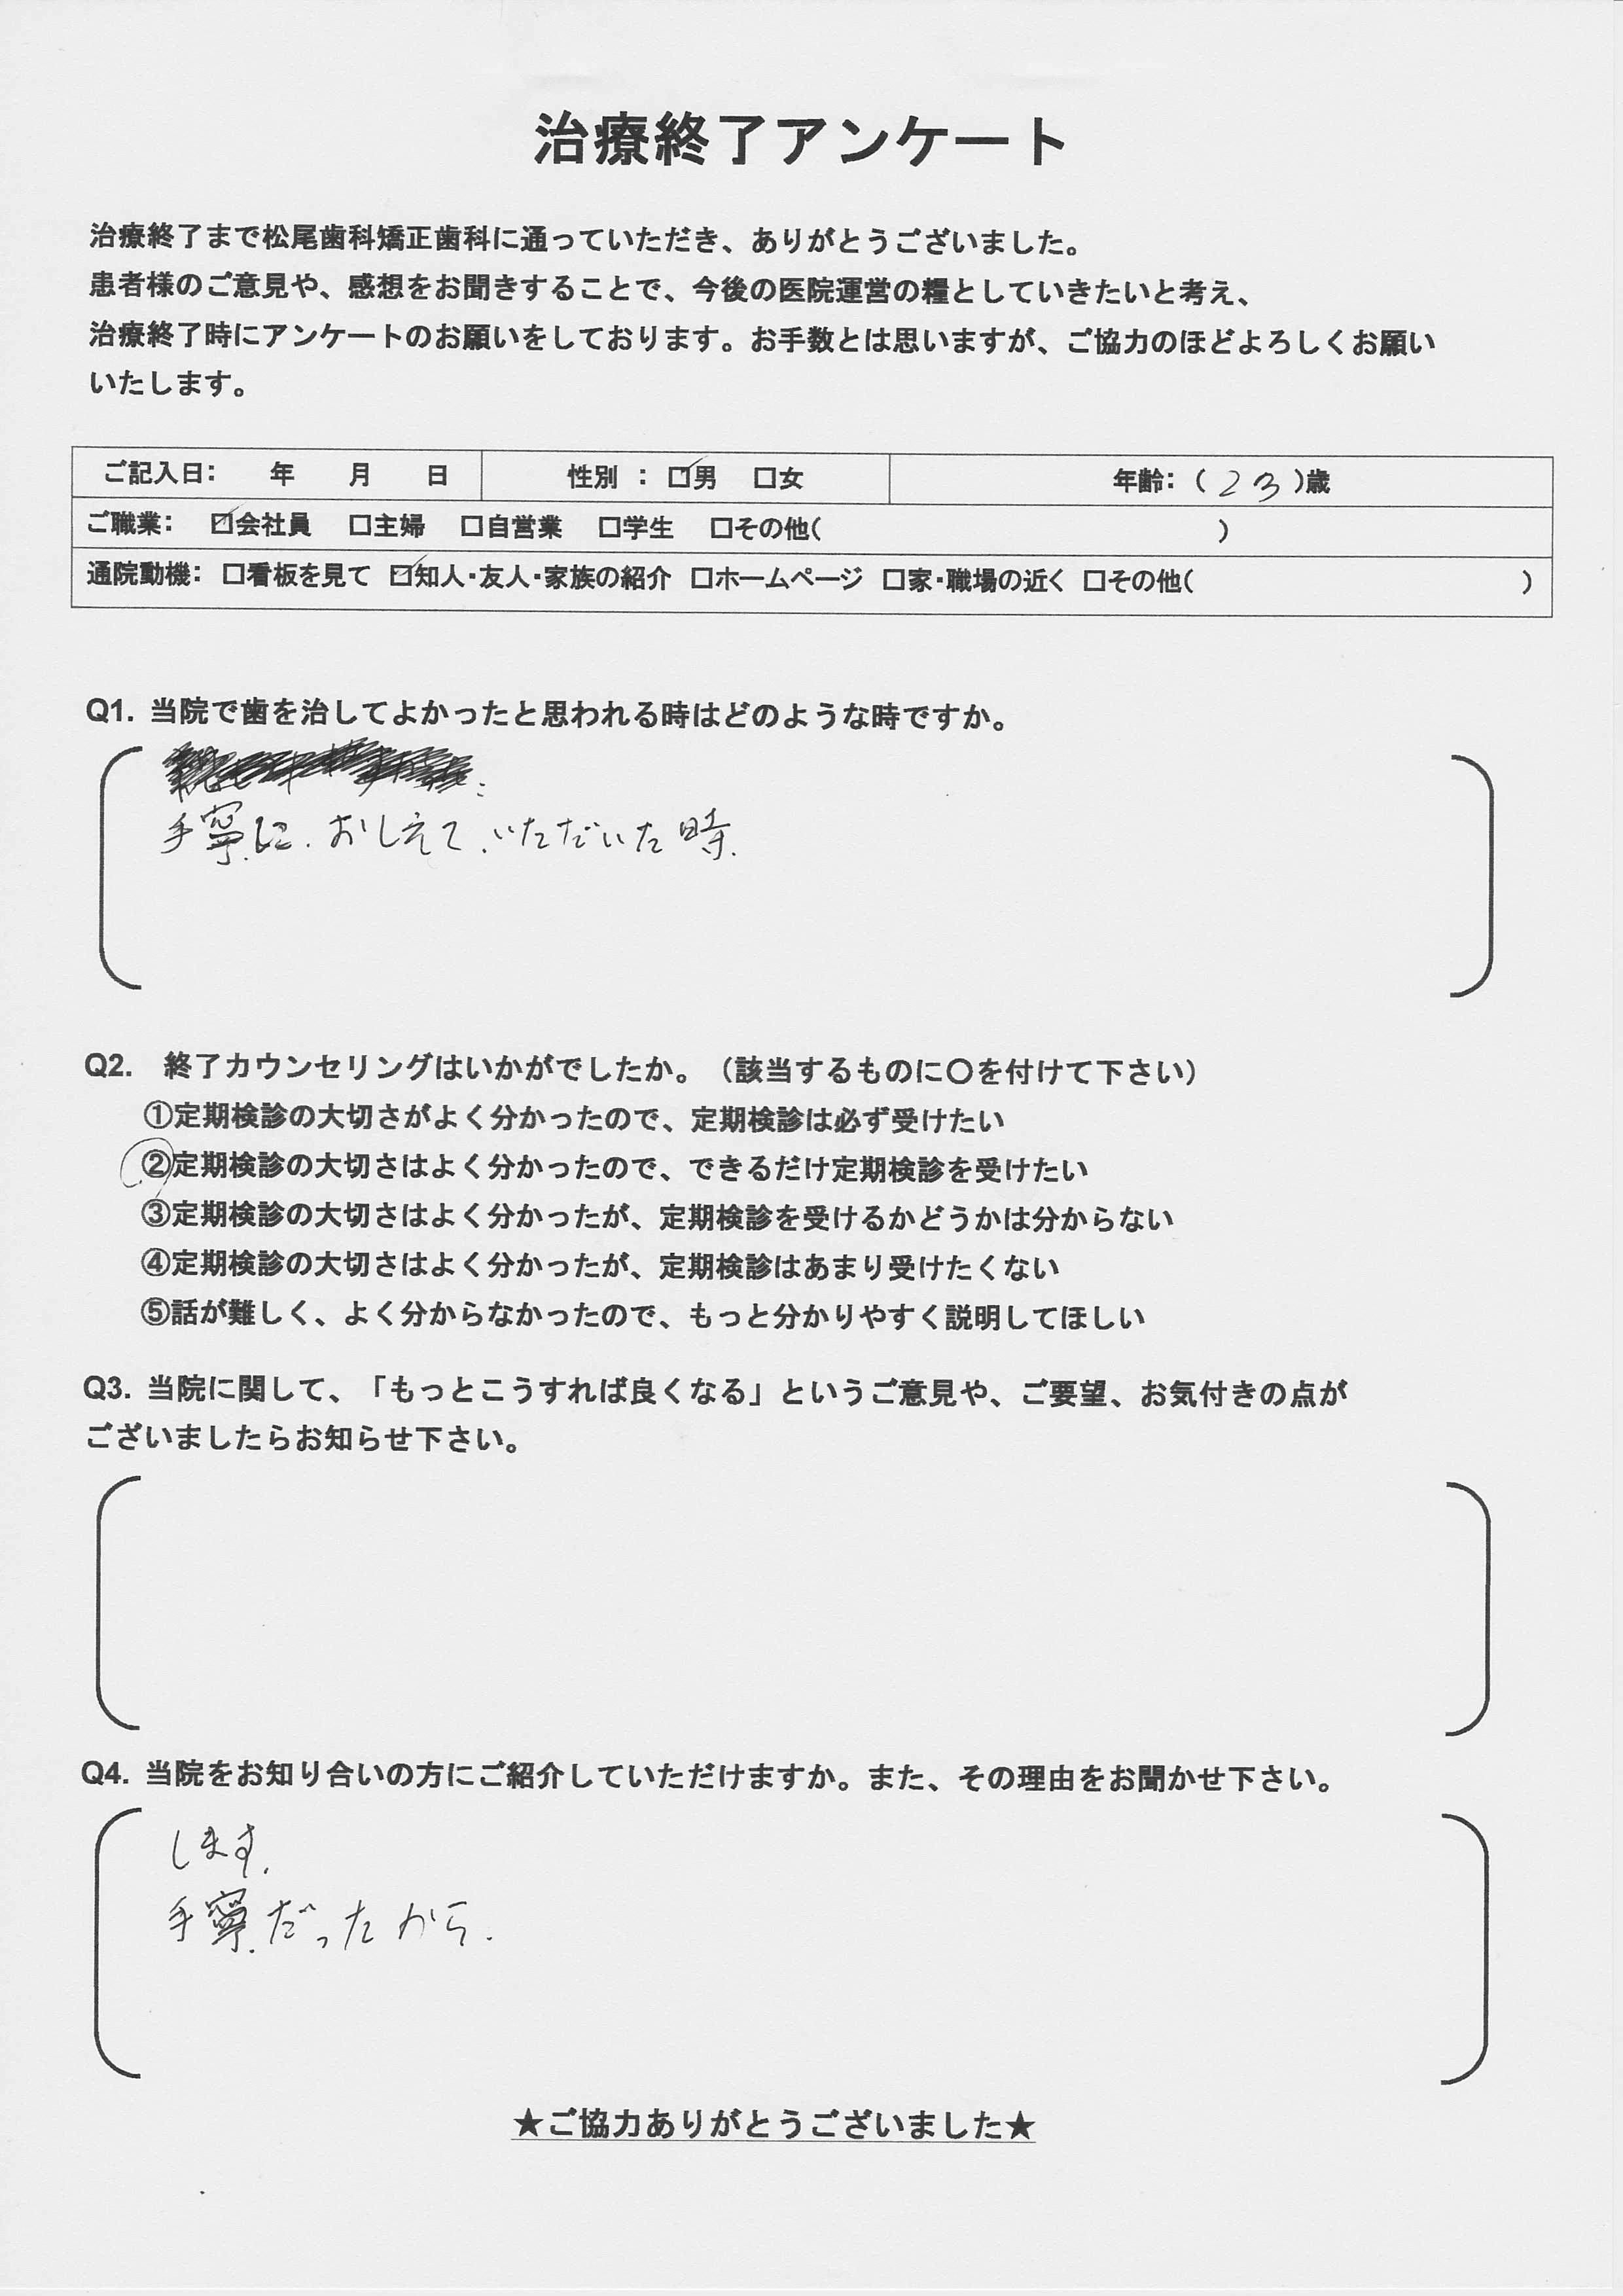 治療終了アンケート
治療終了まで松尾歯科矯正歯科に通っていただき、ありがとうございました。
患者様のご意見や、感想をお聞きすることで、今後の医院運営の糧としていきたいと考え、
治療終了時にアンケートのお願いをしております。お手数とは思いますが、ご協力のほどよろしくお願い
いたします。
ご記入日： 年 月 日 性別 ： ☑男 □女 年齢：（ 23 ）歳
ご職業： ☑会社員 □主婦 □自営業 □学生 □その他（ ）
通院動機： □看板を見て ☑知人・友人・家族の紹介 □ホームページ □家・職場の近く □その他（ ）
Q1. 当院で歯を治してよかったと思われる時はどのような時ですか。
手寧に.おしえて.いただいた時.
Q2. 終了カウンセリングはいかがでしたか。（該当するものに〇を付けて下さい）
①定期検診の大切さがよく分かったので、定期検診は必ず受けたい
②定期検診の大切さはよく分かったので、できるだけ定期検診を受けたい
③定期検診の大切さはよく分かったが、定期検診を受けるかどうかは分からない
④定期検診の大切さはよく分かったが、定期検診はあまり受けたくない
⑤話が難しく、よく分からなかったので、もっと分かりやすく説明してほしい
Q3. 当院に関して、「もっとこうすれば良くなる」というご意見や、ご要望、お気付きの点が
ございましたらお知らせ下さい。
Q4. 当院をお知り合いの方にご紹介していただけますか。また、その理由をお聞かせ下さい。
します.
手寧だったから.
★ご協力ありがとうございました★